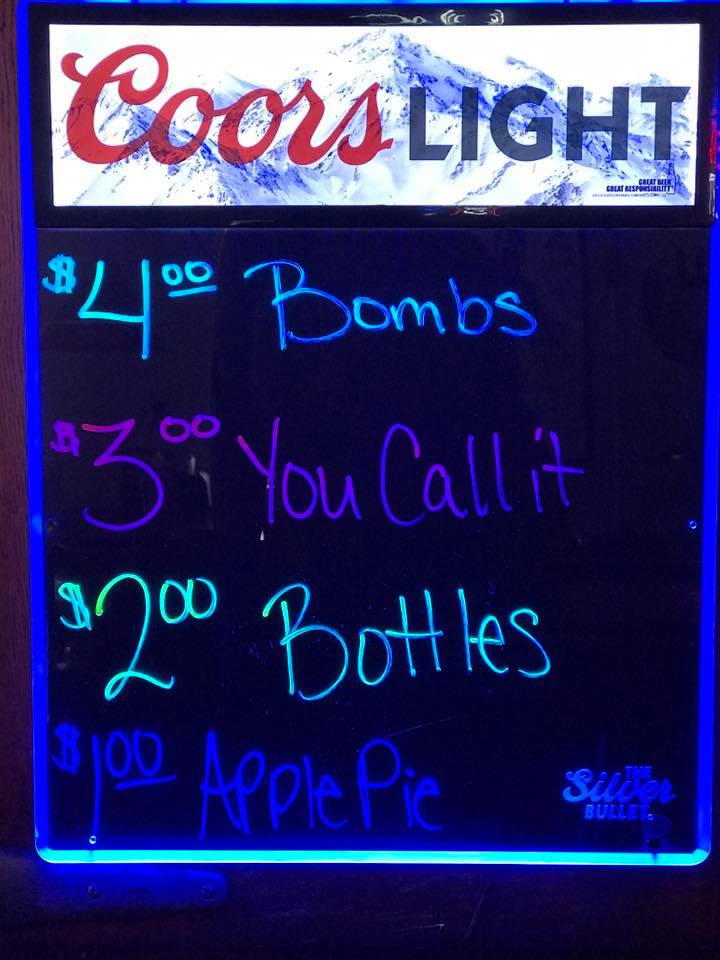 Coors LIGHT
GREAT BEER
GREAT RESPONSIBILITY
$4.00 Bombs
$3.00 You Call it
$2.00 Bottles
$1.00 Apple Pie
THE
Silver
BULLET.